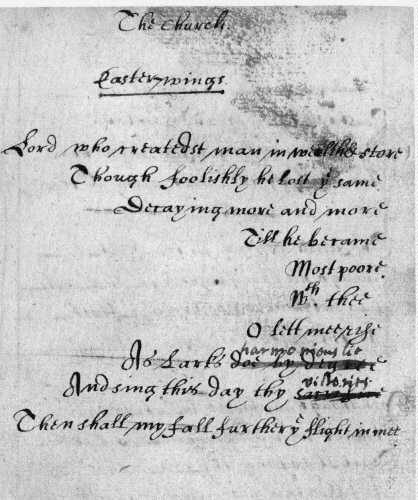 The Church.
Easter-wings.
Lord who createdst man in wealth & store
Though foolishly he lost yᵉ same
Decaying more and more
Till he became
Most poore.
Wᵗʰ. thee
O lett mee rise
harmoniouslie
As Larks doe by degree
victories
And sing this day thy
Then shall my fall further yᵉ flight in mee